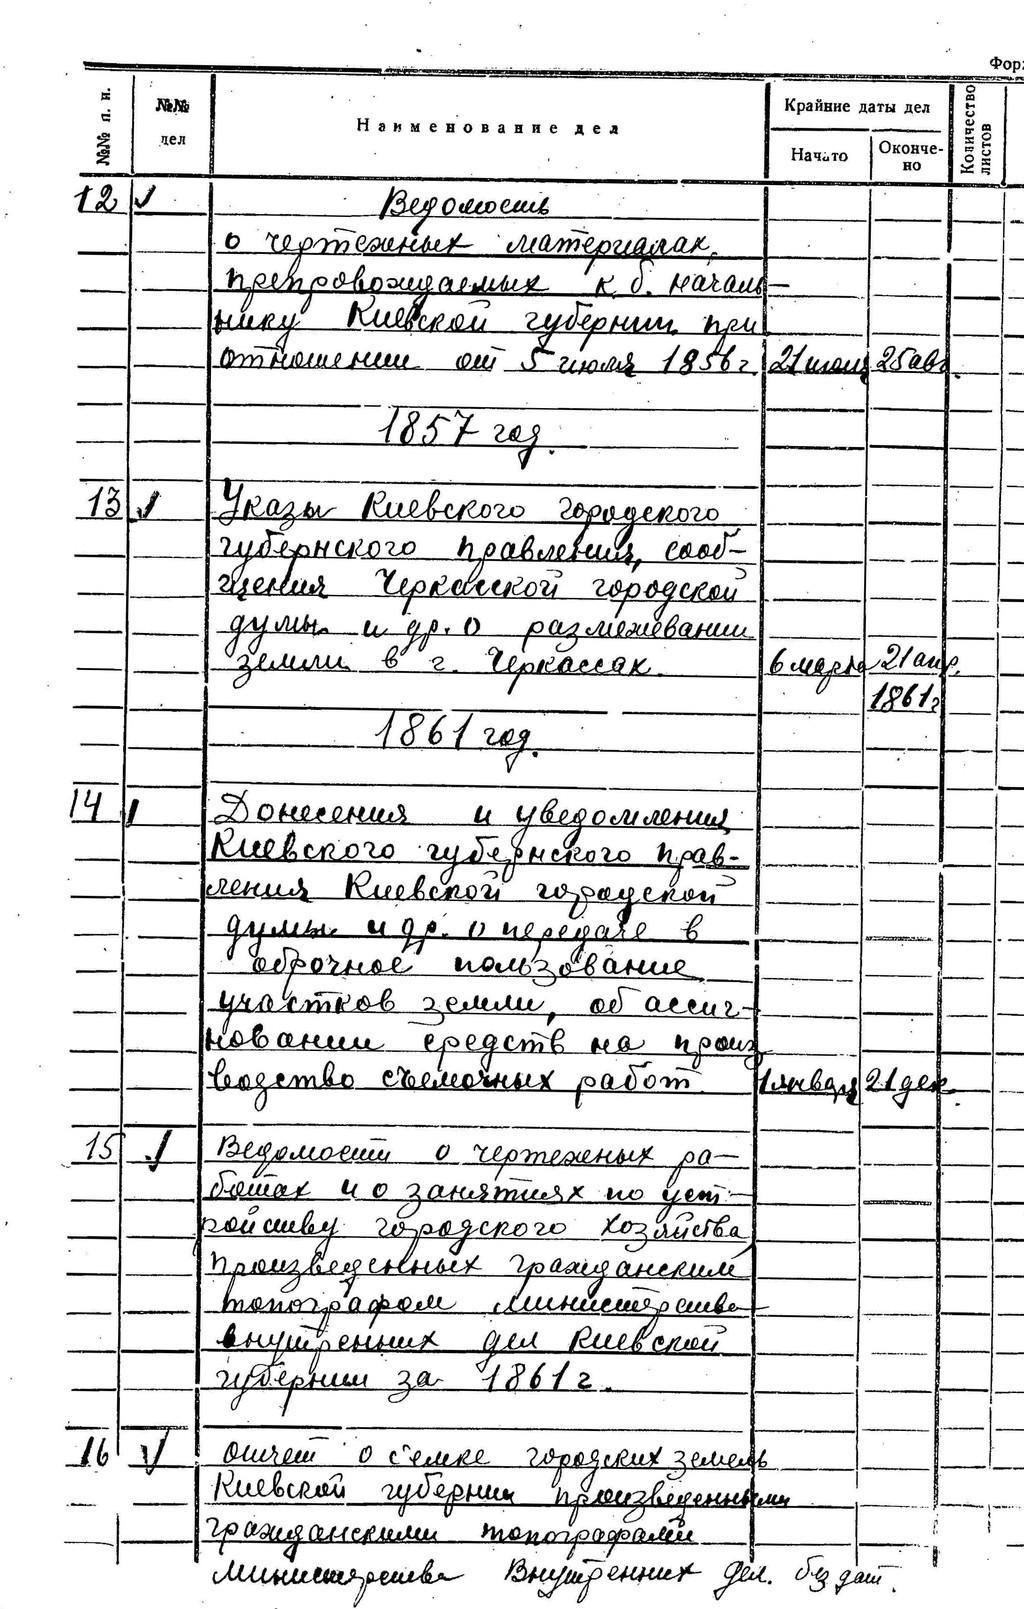 Фор
№№ п. п.
№№ дел
Наименование дел
Крайние даты дел
Начато
Окончено
Количество листов
12 Ведомость
о чертежных материалах,
препровождаемых к б. началь-
нику Киевской губернии при
отношении от 5 июля 1856 г. 21 июля 25 авг.
1857 год.
13 Указы Киевского городского
губернского правления, сооб-
щения Черкасской городской
думы и др. о размежевании
земли в г. Черкассах. 6 марта 21 апр.
1861 г
1861 год.
14 Донесения и уведомления
Киевского губернского прав-
ления Киевской городской
думы и др. о передаче в
оброчное пользование
участков земли, об ассиг-
новании средств на произ
водство съемочных работ 1 января 21 дек.
15 Ведомости о чертежных ра-
ботах и о занятиях по уст-
ройству городского хозяйства,
произведенных гражданским
топографом Министерства
внутренних дел Киевской
губернии за 1861 г.
16 отчет о с'емке городских земель
Киевской губернии произведенными
гражданскими топографами
Министерства Внутренних Дел. без дат.